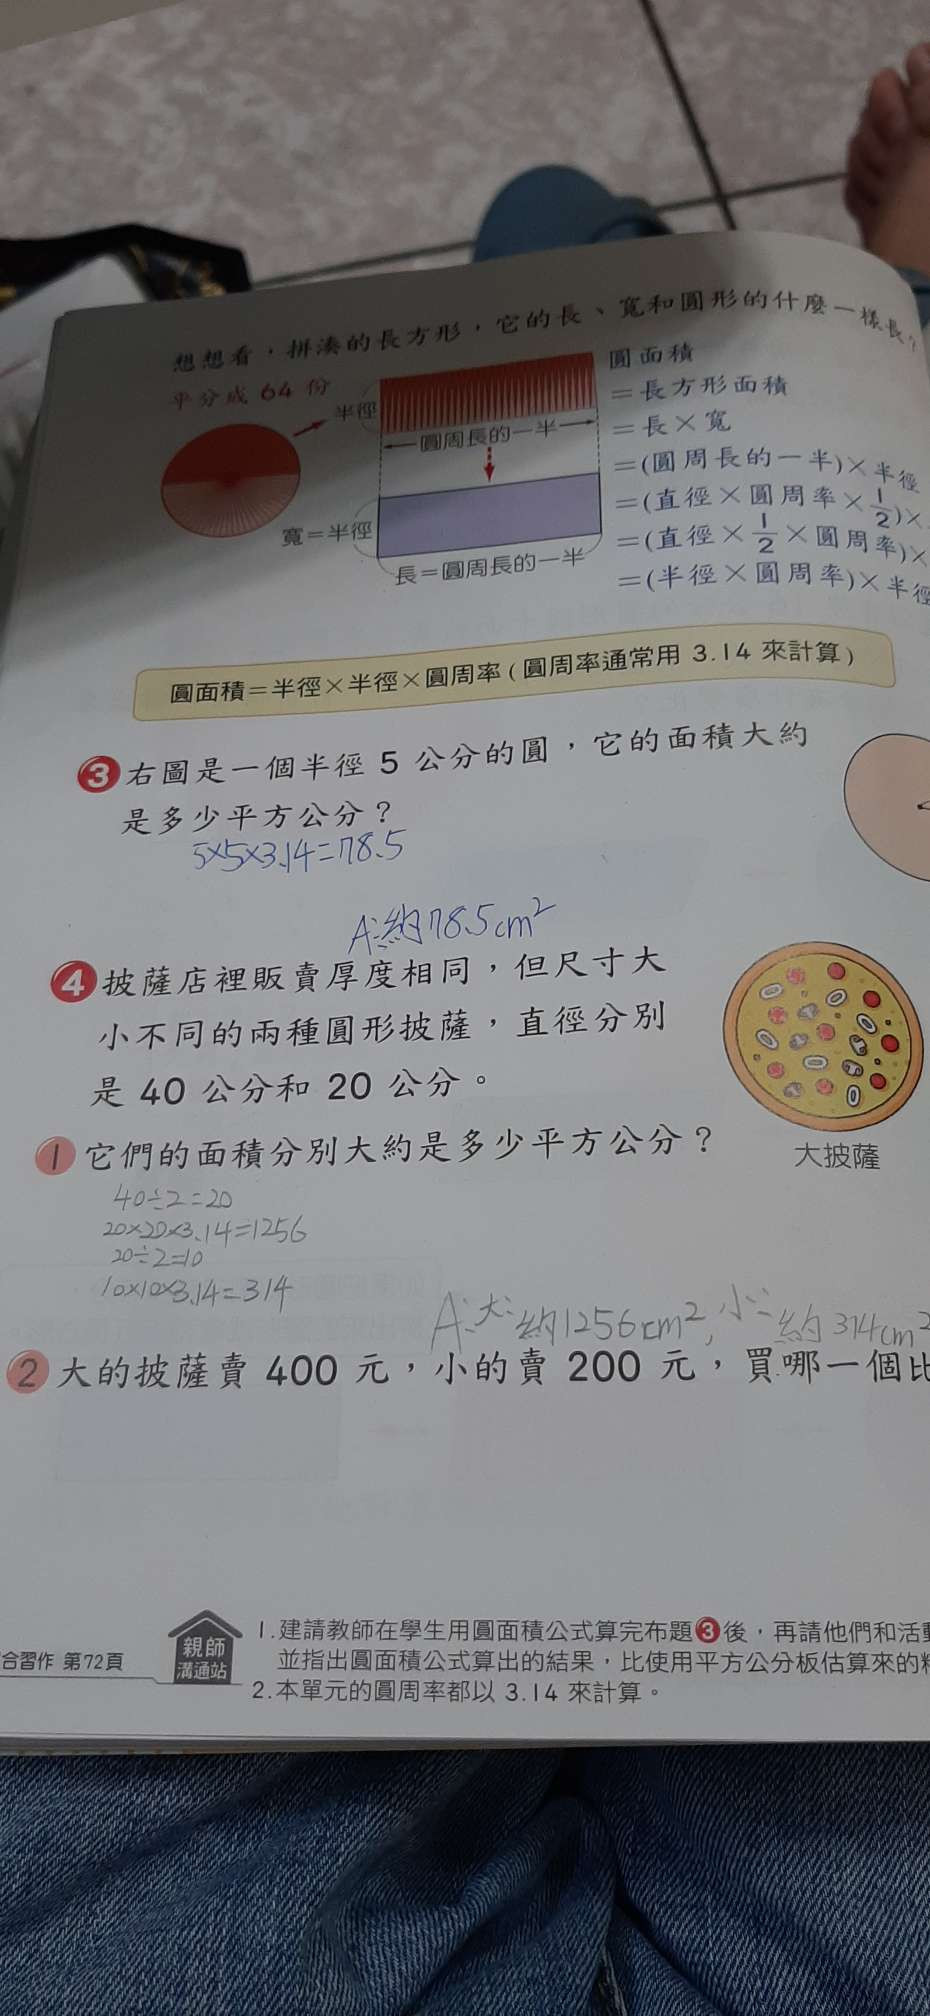 想想看，拼湊的長方形，它的長、寬和圓形的什麼一樣長？
平分成 64 份
半徑
圓周長的一半
寬＝半徑
長＝圓周長的一半
圓面積
＝長方形面積
＝長×寬
＝(圓周長的一半)×半徑
＝(直徑×圓周率×1/2)×
＝(直徑×1/2×圓周率)×
＝(半徑×圓周率)×半徑
圓面積＝半徑×半徑×圓周率(圓周率通常用 3.14 來計算)
3 右圖是一個半徑 5 公分的圓，它的面積大約
是多少平方公分？
5×5×3.14=78.5
A:約78.5cm²
4 披薩店裡販賣厚度相同，但尺寸大
小不同的兩種圓形披薩，直徑分別
是 40 公分和 20 公分。
大披薩
1 它們的面積分別大約是多少平方公分？
40÷2=20
20×20×3.14=1256
20÷2=10
10×10×3.14=314
A:大:約1256cm²,小:約314cm²
2 大的披薩賣 400 元，小的賣 200 元，買哪一個比
親師
溝通站
1.建請教師在學生用圓面積公式算完布題3後，再請他們和活動
並指出圓面積公式算出的結果，比使用平方公分板估算來的精
2.本單元的圓周率都以 3.14 來計算。
合習作 第72頁